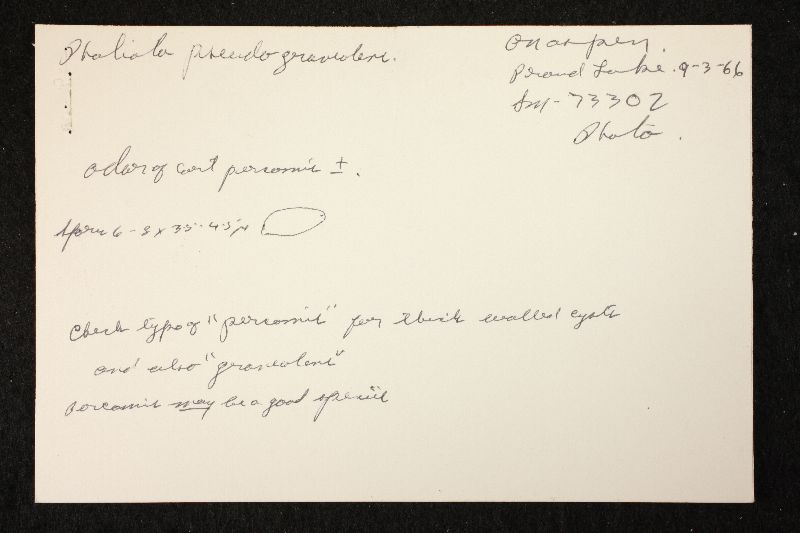 Pholiota pseudograveolens.
on aspen.
Proud Lake. 9-3-66
Sm-73302
Photo.
odor of Cort percomis ±.
spores 6-8 x 3.5-4.5 µ
Check type of "percomis" for thick walled cysts
and also "graveolens"
percomis may be a good species